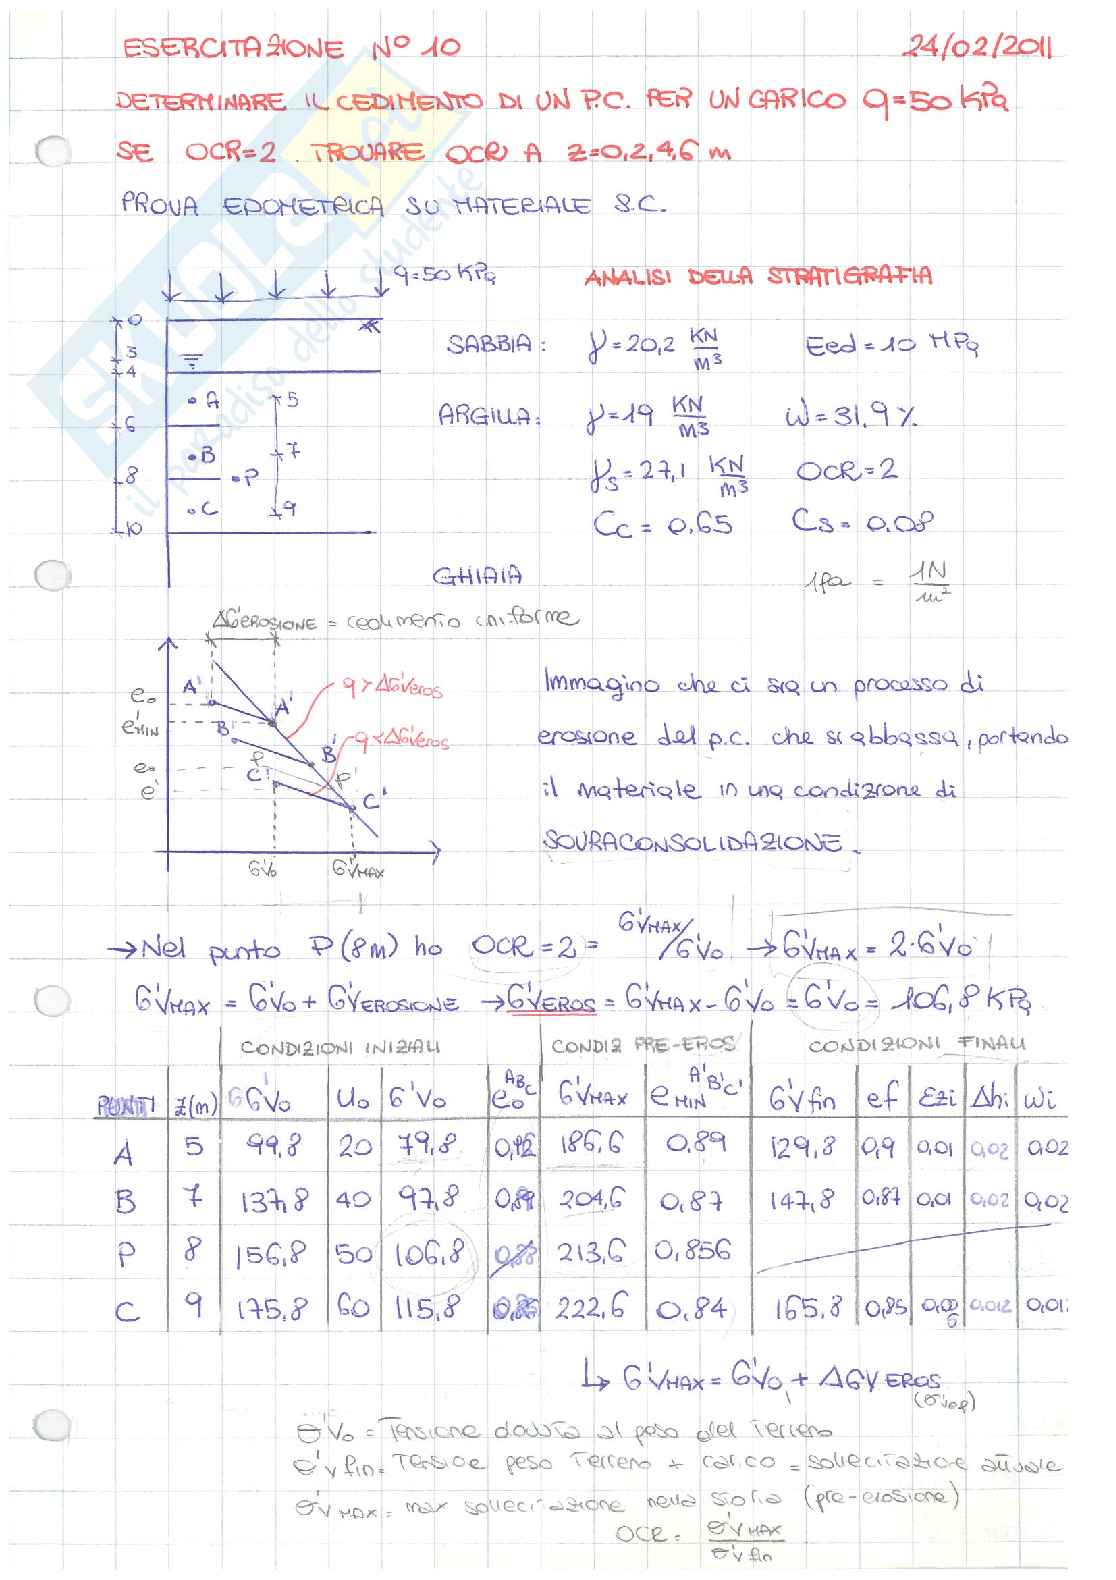 ESERCITAZIONE N° 10 24/02/2011
DETERMINARE IL CEDIMENTO DI UN P.C. PER UN CARICO q=50 KPa
SE OCR=2. TROUARE OCR A Z=0,2,4,6 m
PROVA EDOMETRICA SU MATERIALE S.C.
SKUOLA.NET
il paradiso dello studente
q=50 KPa ANALISI DELLA STRATIGRAFIA
0
3
4
SABBIA: γ=20,2 KN/m³ Eed=10 MPa
A 5
6
ARGILLA: γ=19 KN/m³ W=31,9%
B 7
8
P
γs=27,1 KN/m³ OCR=2
C 9
10
Cc=0,65 Cs=0.08
GHIAIA 1Pa = 1N/m²
ΔG'EROSIONE = cedimento uniforme
e₀ A' A' q>ΔG'veros
e'MIN B' B' q<ΔG'veros
e₀ P P'
e' C' C'
G'v₀ G'vMAX
Immagino che ci sia un processo di
erosione del p.c. che si abbassa, portando
il materiale in una condizione di
SOURACONSOLIDAZIONE.
→Nel punto P(8M) ho OCR=2= G'vMAX/G'v₀ →G'vMAX=2·G'v₀
G'vMAX = G'v₀ + G'vEROSIONE →G'vEROS = G'vMAX-G'v₀ = G'v₀ = 106,8 KPa
CONDIZIONI INIZIALI CONDIZ PRE-EROS CONDIZIONI FINALI
PUNTI Z(m) Gv₀ U₀ G'v₀ e₀ ABC G'vMAX eMIN A'B'C' G'vfin ef εzi Δhi wi
A 5 99,8 20 79,8 186,6 0,89 129,8 0,9 0,01 0,02 0,02
B 7 137,8 40 97,8 0,89 204,6 0,87 147,8 0,87 0,01 0,02 0,02
P 8 156,8 50 106,8 0,88 213,6 0,856
C 9 175,8 60 115,8 222,6 0,84 165,8 0,85 0,012
↳ G'vMAX = G'v₀ + ΔGvEROS
σ'v₀ = Tensione dovuta al peso del Terreno
σ'vfin = Tensioe peso Terreno + carico = sollecitazione attuale
σ'vMAX = max sollecitazione nella storia (pre-erosione)
OCR = σ'vMAX/σ'vfin